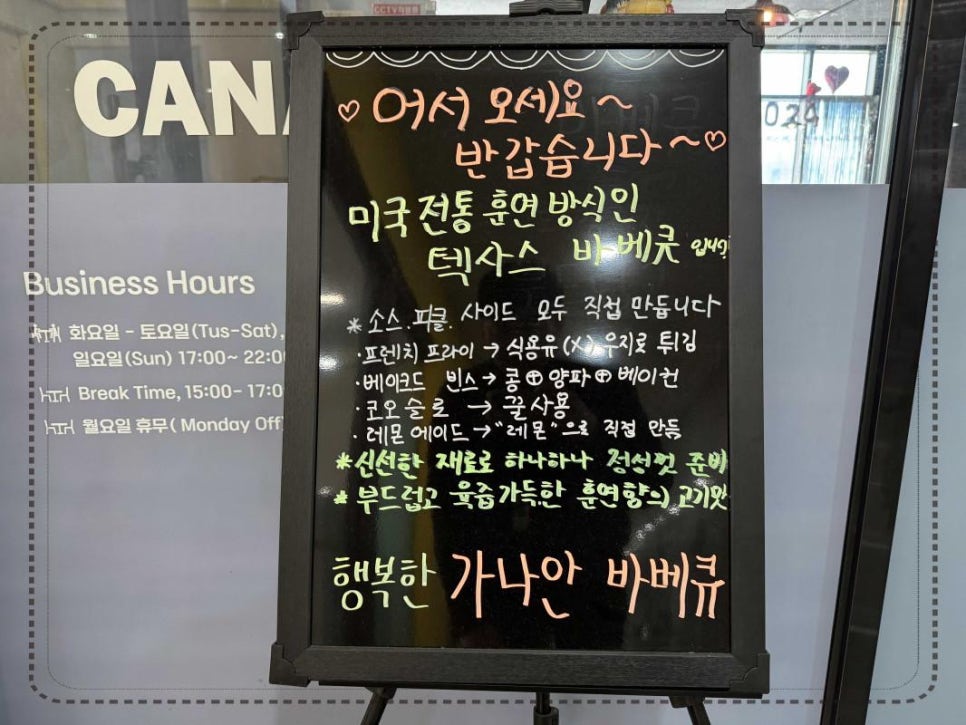 CCTV작동중
CAN
2024
Business Hours
화요일 - 토요일(Tus-Sat),
일요일(Sun) 17:00~ 22:00
Break Time, 15:00- 17:0
월요일 휴무( Monday Off)
♡ 어서 오세요~
반갑습니다~♡
미국 전통 훈연 방식인
텍사스 바베큣 입니다
* 소스.피클. 사이드 모두 직접 만듭니다
·프렌치 프라이 → 식용유(X) 우지로 튀김
·베이크드 빈스 → 콩⊕양파⊕베이컨
·코오슬로 → 꿀사용
·레몬에이드 → "레몬"으로 직접 만듦
*신선한 재료로 하나하나 정성껏 준비
* 부드럽고 육즙가득한 훈연향의 고기맛
행복한 가나안 바베큐